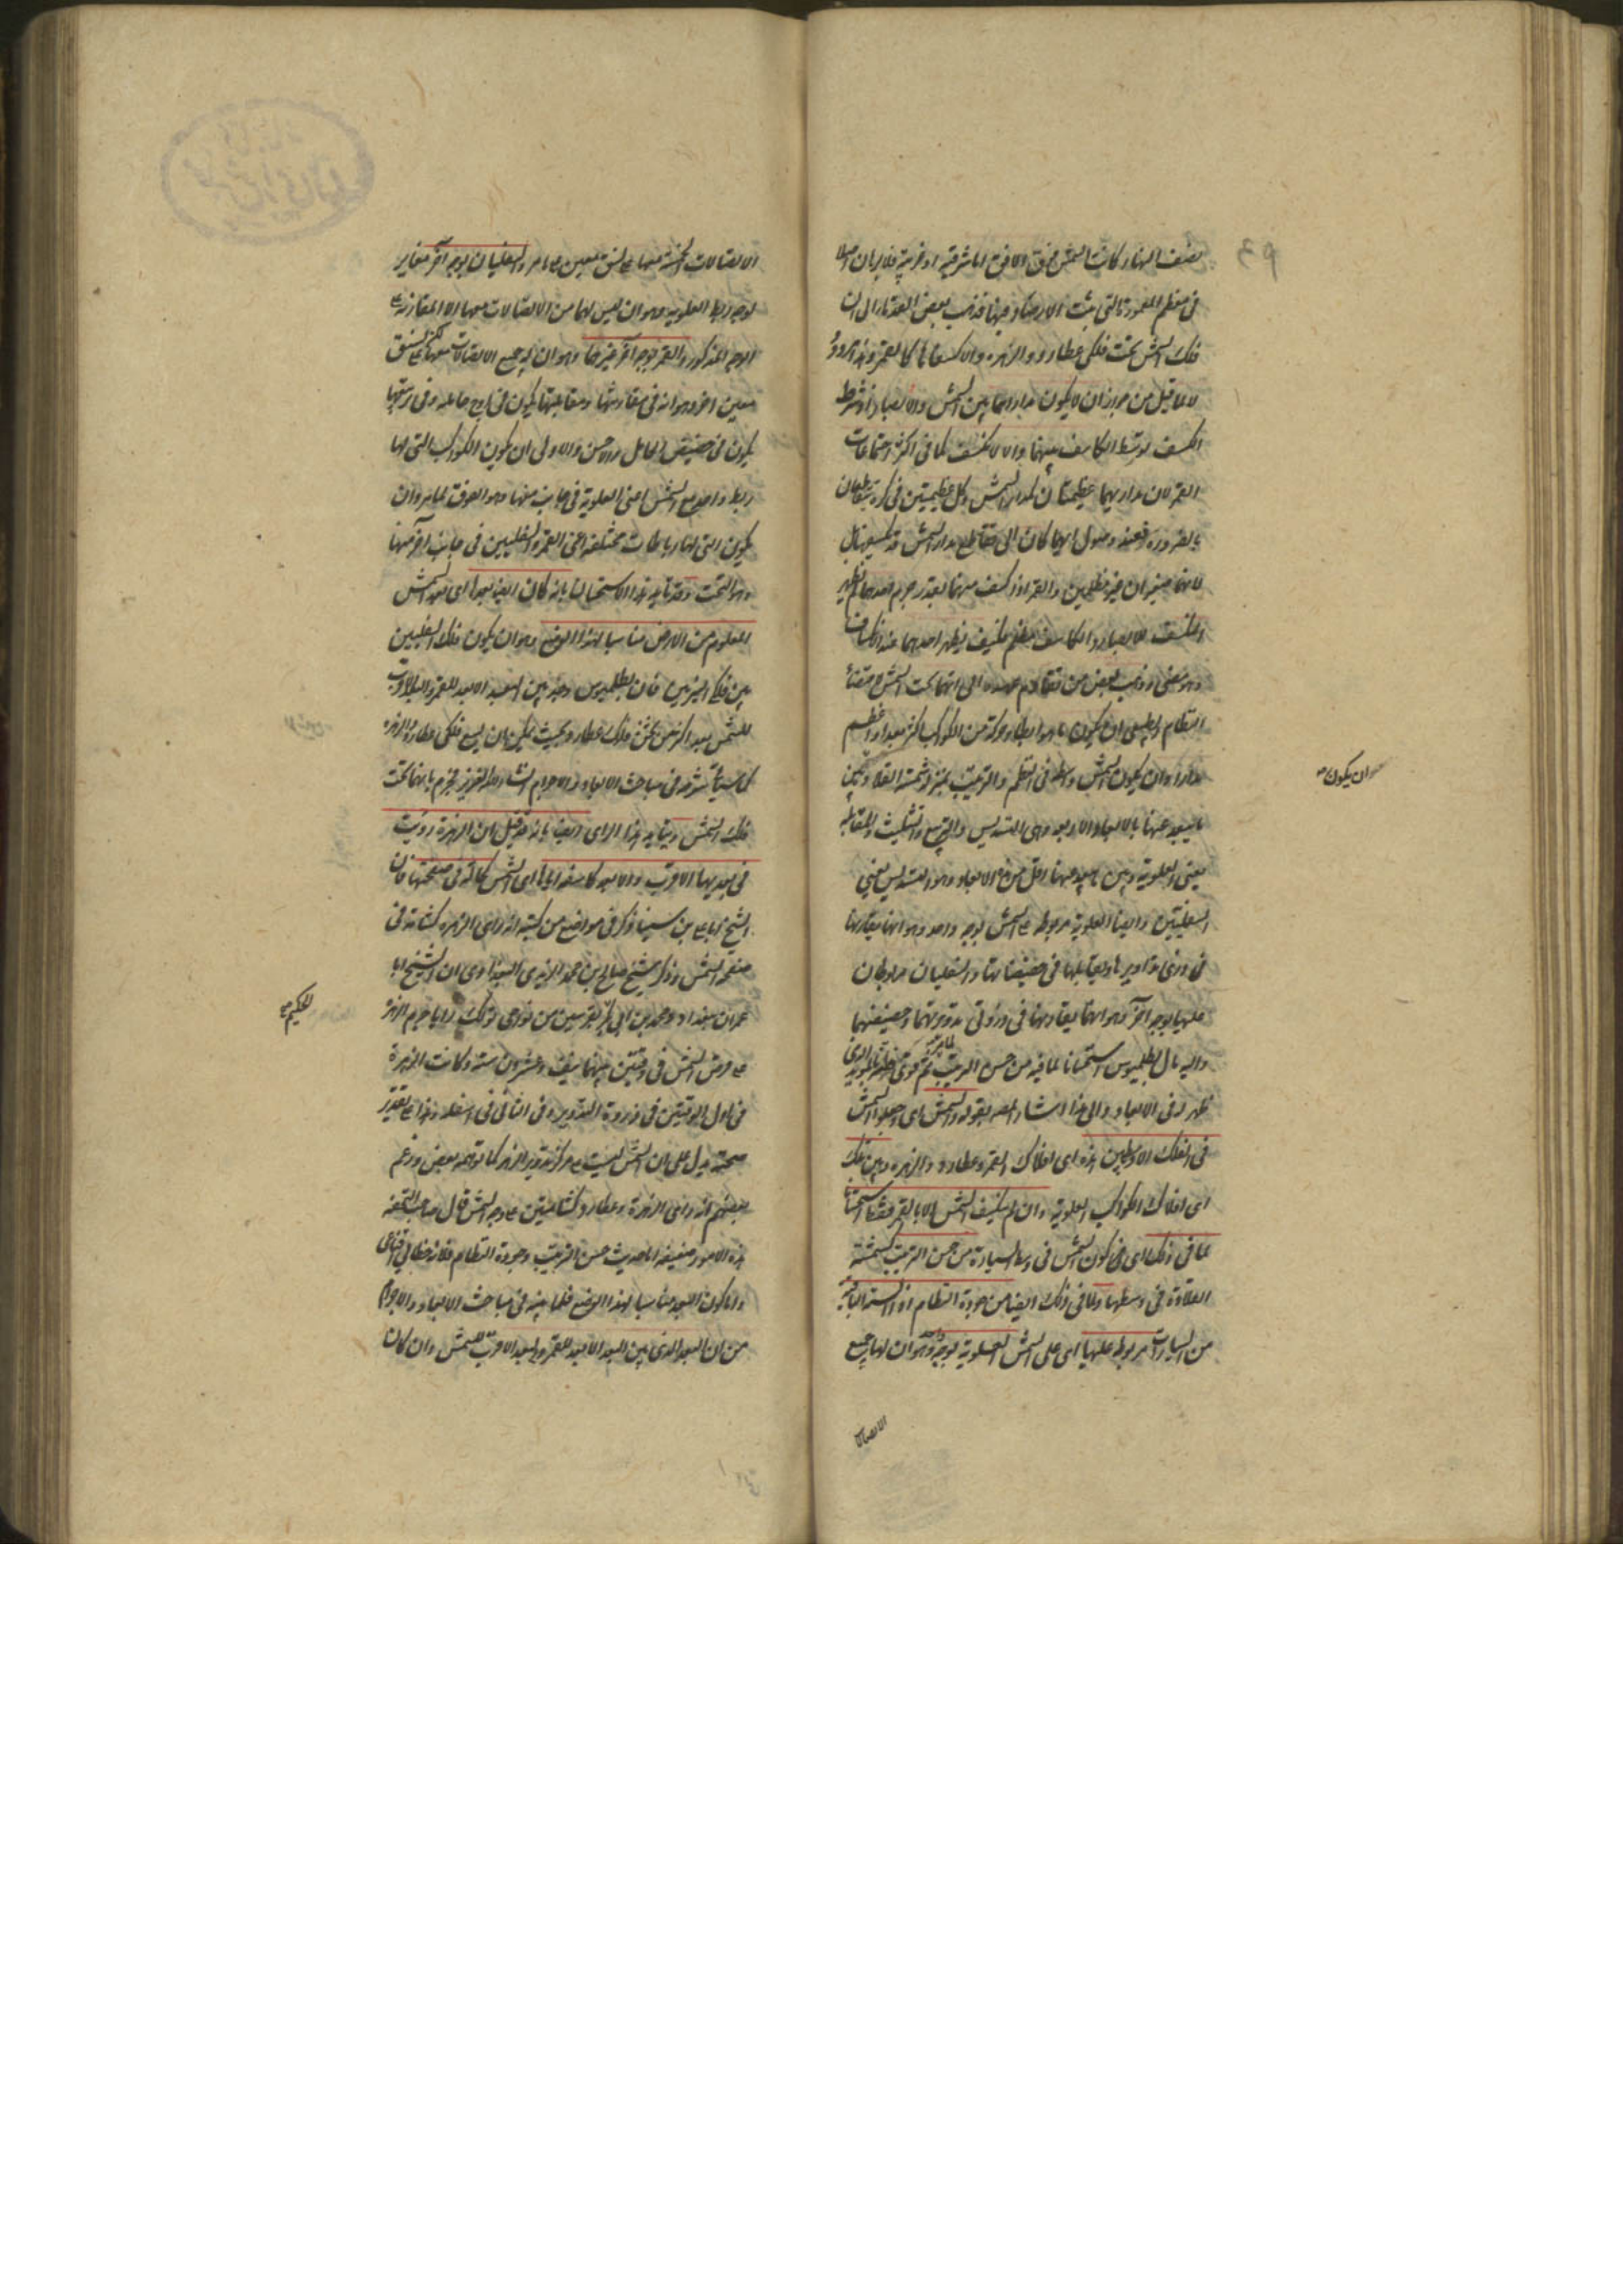 نصف النهار كانت الشمس فوق الافق اما شرقية او غربية فلا يريان اصلا
فى معظم المعمورة التى بنيت الارصاد فيها فذهب بعض القدماء الى ان
فلك الشمس تحت فلكى عطارد والزهرة والا كسفاها كالقمر وهذا مردود
لا لما قيل من جواز ان لا يكون مداراهما بين الشمس والابصار اذ شرط
الكسف توسط الكاسف بينهما والا لا يكسف كما فى اكثر اجتماعات
القمر لان مداريهما عظيمتان كمدار الشمس وكل عظيمتين فى كرة يتقاطعان
بالضرورة فعند وصول ايهما كان الى تقاطع مدار الشمس قد يكسفها بل
لانهما صغيران غير مظلمين والقمر اذا كسف منها بقدر جرم احدهما لم يظهر
المنكسف للابصار والكاسف مظلم فكيف يظهر احدهما عند انكساف
وهو مضىء وذهب بعض من تقادم عهده الى انهما تحت الشمس لاقتضاء
النظام الطبيعى ان يكون ما هو ابطأ حركة من الكواكب اكثر بعدا واعظم
مدارا وان يكون الشمس واسطة فى النظم والترتيب بمنزلة شمسة القلادة بين
ما يبعد عنها بالابعاد الاربعة وهى التسديس والتربيع والتثليث والمقابلة
يعنى العلوية وبين ما يبعد عنها اقل من هذه الابعاد وهو التسديس يعنى
السفليتين وايضا العلوية مربوطة على الشمس بوجه واحد وهو انها يقارنها
فى ذرى تداويرها ويقابلها فى حضيضاتها والسفليان مربوطان
عليها بوجه آخر وهو انهما يقارنها فى ذروتى تدويريهما وحضيضيهما
واليه مال بطلميوس استحسانا لما فيه من حسن الترتيب ثم قوى ظنه بما
ظهر له فى الابعاد والى هذا اشار المصـ بقوله والشمس اى وجعلوا الشمس
فى الفلك الاوسط بين هذه اى افلاك القمر وعطارد والزهرة وبين تلك
اى افلاك الكواكب العلوية وان لم ينكسف الشمس الا بالقمر فقط استحسانا
لما فى ذلك اى فى كون الشمس فى وسط السيارة من حسن الترتيب كشمسة
القلادة فى وسطها ولما فى ذلك ايضا من جودة النظام اذ الستة الباقية
من السيارات مربوطة عليها اى على الشمس العلوية بوجه واحد وهو ان لها جميع
الاتصالات
ان يكون صح
الاتصالات الخمسة معها على نسق معين على ما مر والسفليان بوجه آخر مغاير
لوجه ربط العلوية وهو ان ليس لهما من الاتصالات معها الا المقارنة على
الوجه المذكور والقمر بوجه آخر غيرهما وهو ان له جميع الاتصالات معها لكن على نسق
معين آخر وهو انه فى مقارنتها ومقابلتها يكون فى اوج حامله وفى تربيعها
يكون فى حضيض الحامل والاحسن والاولى ان يكون الكواكب التى لها
ربط واحد مع الشمس اعنى العلوية فى جانب منها وهو الفوق لما مر وان
يكون التى لها رباطات مختلفة اعنى القمر والسفليين فى جانب آخر منها
وهو التحت وقد تأيد هذا الاستحسان بانه كان ايضا بعدها اى بعد الشمس
المعلوم من الارض مناسبا لهذا الوضع وهو ان يكون فلك السفليين
بين فلكى النيرين فان بطلميوس وجد بين البعد الابعد للقمر والبعد الاقرب
للشمس بعدا اكثر من ثخن فلك عطارد بحيث يمكن ان يسع فلكى عطارد والزهرة
كما سيأتى شرحه فى مباحث الابعاد والاجرام ان شاء الله العزيز فجزم بانهما تحت
فلك الشمس ويتأيد هذا الراى ايضا بانه قد قيل ان الزهرة رؤيت
فى بعديها الاقرب والابعد كاسفة اياها اى الشمس كشامة فى صفحتها فان
الشيخ ابا على بن سينا ذكر فى مواضع من كتبه انه راى الزهرة كشامة فى
صفحة الشمس وذكر الشيخ صالح بن محمد الزينبى البغدادى ان الشيخ ابا
عمران ببغداد ومحمد بن ابى بكر بفرسين من نواحى تولك رايا جرم الزهرة
على قرص الشمس فى وقتين بينهما نيف وعشرون سنة وكانت الزهرة
فى اول الوقتين فى ذروة التدوير وفى الثانى فى اسفله وهذا على تقدير
صحته يدل على ان الشمس ليست على مركز تدوير الزهرة كما توهمه بعض وزعم
بعضهم انه راى الزهرة وعطارد كشامتين على وجه الشمس قال صاحب التحفة
هذه الامور ضعيفة اما حديث حسن الترتيب وجودة النظام فلانه خطابى اقناعى
واما كون البعد مناسبا لهذا الوضع فلما يبينه فى مباحث الابعاد والاجرام
من ان البعد الذى بين البعد الابعد للقمر والبعد الاقرب للشمس وان كان
الحكيم صح